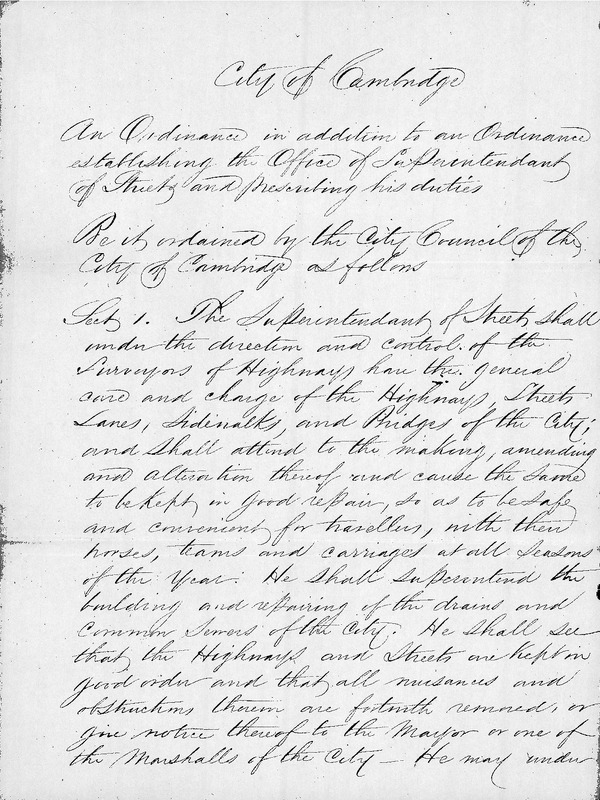 City of Cambridge
An Ordinance in addition to an Ordinance
establishing the Office of Superintendant
of Streets and prescribing his duties
Be it ordained by the City Council of the
City of Cambridge as follows
Sect 1. The Superintendant of Streets shall
under the direction and control of the
Surveyors of Highways have the general
care and charge of the Highways, Streets
Lanes, Sidewalks, and Bridges of the City;
and shall attend to the making, amending
and alteration thereof and cause the same
to be kept in good repair, so as to be safe
and convenient for travellers, with their
horses, teams and carriages at all seasons
of the Year. He shall superintend the
building and repairing of the drains and
common sewers of the city. He shall see
that the Highways and Streets are kept in
good order and that all nuisances and
obstructions therein are forthwith removed, or
give notice thereof to the Mayor or one of
the Marshalls of the City — He may under